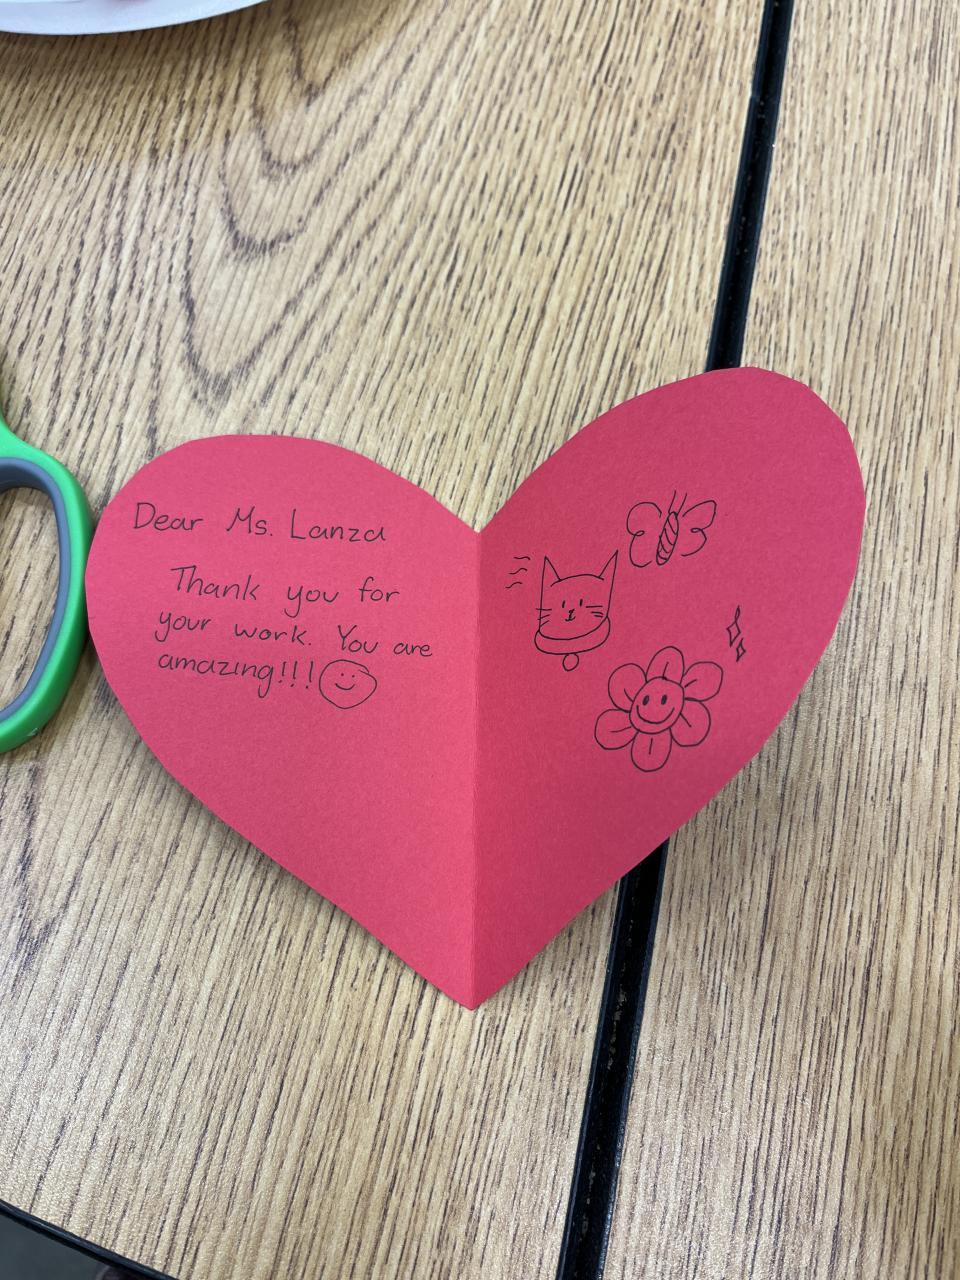 Dear Ms. Lanza
Thank you for
your work. You are
amazing!!!